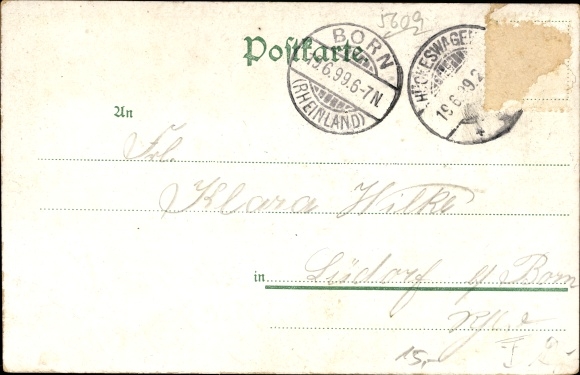 5609
Postkarte
BORN
19.6.99.6-7N
(RHEINLAND)
HÜCKESWAGEN
19.6.99.
An
Frl.
Klara Wilke
in Lüdorf b/ Born
Rhl.
15,-